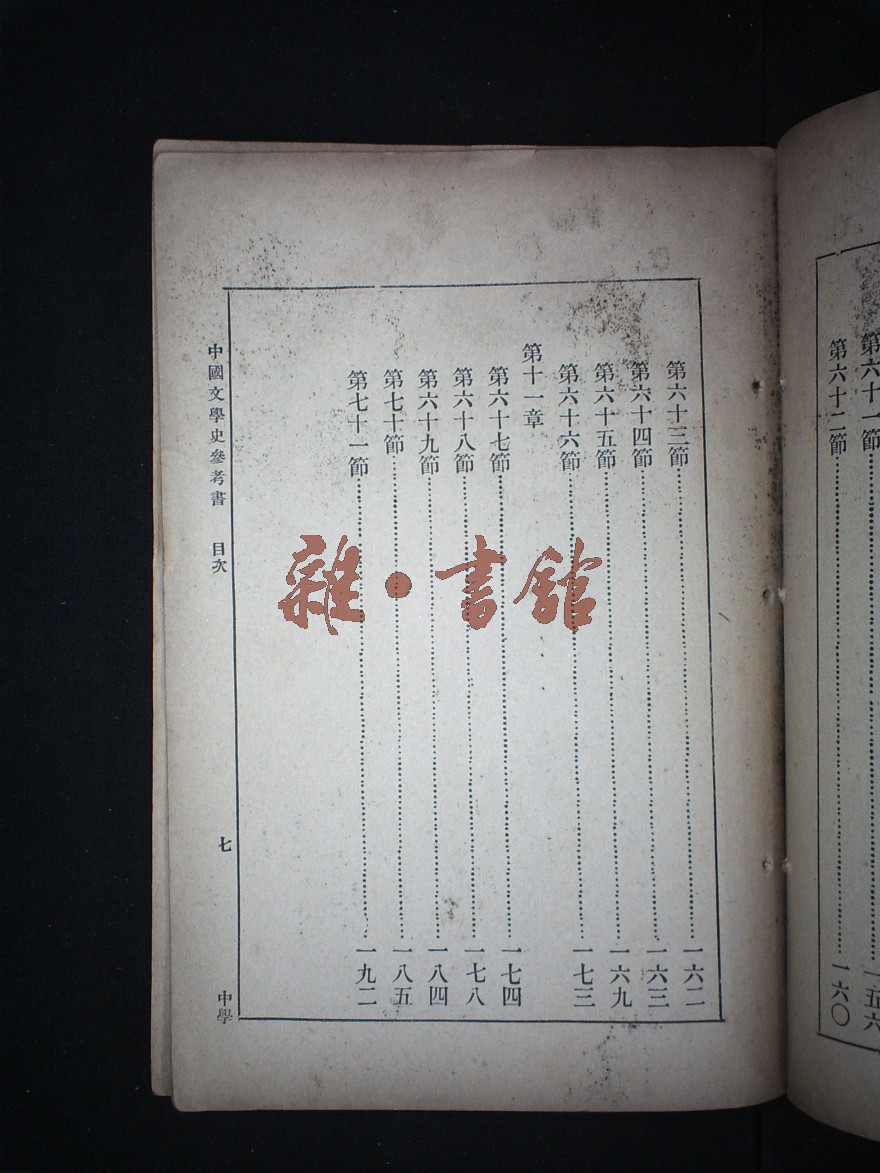 第六十一節……一五六
第六十二節……一六〇
第六十三節……一六二
第六十四節……一六三
第六十五節……一六九
第六十六節……一七三
第十一章
第六十七節……一七四
第六十八節……一七八
第六十九節……一八四
第七十節……一八五
第七十一節……一九二
中國文學史參考書 目次 七 中學
雜·書館